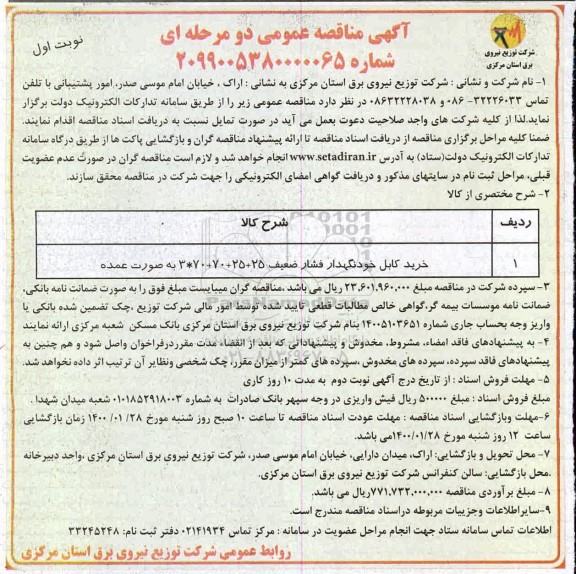 آگهی مناقصه عمومی دو مرحله ای
شماره ۲۰۹۹۰۰۵۳۸۰۰۰۰۰۶۵
نوبت اول
شرکت توزیع نیروی
برق استان مرکزی
۱- نام شرکت و نشانی : شرکت توزیع نیروی برق استان مرکزی به نشانی : اراک ، خیابان امام موسی صدر، امور پشتیبانی با تلفن
تماس ۳۲۲۲۶۰۳۳- ۰۸۶ و ۰۸۶۳۲۲۲۸۰۳۸ در نظر دارد مناقصه عمومی زیر را از طریق سامانه تدارکات الکترونیک دولت برگزار
نماید.لذا از کلیه شرکت های واجد صلاحیت دعوت بعمل می آید در صورت تمایل نسبت به دریافت اسناد مناقصه اقدام نمایند.
ضمنا کلیه مراحل برگزاری مناقصه از دریافت اسناد مناقصه تا ارائه پیشنهاد مناقصه گران و بازگشایی پاکت ها از طریق درگاه سامانه
تدارکات الکترونیک دولت(ستاد) به آدرس www.setadiran.ir انجام خواهد شد و لازم است مناقصه گران در صورت عدم عضویت
قبلی، مراحل ثبت نام در سایتهای مذکور و دریافت گواهی امضای الکترونیکی را جهت شرکت در مناقصه محقق سازند.
۲- شرح مختصری از کالا
ردیف شرح کالا
۱ خرید کابل خودنگهدار فشار ضعیف ۲۵+۲۵+۷۰+۷۰*۳ به صورت عمده
۳- سپرده شرکت در مناقصه مبلغ ۲۳،۶۰۱،۹۶۰،۰۰۰ ریال می باشد .مناقصه گران میبایست مبلغ فوق را به صورت ضمانت نامه بانکی،
ضمانت نامه موسسات بیمه گر،گواهی خالص مطالبات قطعی تایید شده توسط امور مالی شرکت توزیع ،چک تضمین شده بانکی یا
واریز وجه بحساب جاری شماره ۱۴۰۰۵۱۰۳۶۵۱ بنام شرکت توزیع نیروی برق استان مرکزی بانک مسکن شعبه مرکزی ارائه نمایند
۴- به پیشنهادهای فاقد امضاء، مشروط، مخدوش و پیشنهاداتی که بعد از انقضاء مدت مقرردرفراخوان واصل شود و هم چنین به
پیشنهادهای فاقد سپرده، سپرده های مخدوش ،سپرده های کمتر از میزان مقرر، چک شخصی ونظایر آن ترتیب اثر داده نخواهد شد.
۵- مهلت فروش اسناد : از تاریخ درج آگهی نوبت دوم به مدت ۱۰ روز کاری
مبلغ فروش اسناد : مبلغ ۵۰۰۰۰۰ ریال فیش واریزی در وجه سپهر بانک صادرات به شماره ۰۱۰۱۸۵۲۹۱۸۰۰۳ شعبه میدان شهدا .
۶-مهلت وبازگشایی اسناد مناقصه : مهلت عودت اسناد مناقصه تا ساعت ۱۰ صبح روز شنبه مورخ ۲۸/ ۰۱/ ۱۴۰۰ زمان بازگشایی
ساعت ۱۲ روز شنبه مورخ ۱۴۰۰/۰۱/۲۸می باشد.
۷- محل تحویل و بازگشایی: اراک، میدان دارایی، خیابان امام موسی صدر، شرکت توزیع نیروی برق استان مرکزی ،واحد دبیرخانه
.محل بازگشایی: سالن کنفرانس شرکت توزیع نیروی برق استان مرکزی.
۸- مبلغ برآوردی مناقصه ۷۷۱،۷۳۲،۰۰۰،۰۰۰ریال می باشد.
۹-سایراطلاعات وجزییات مربوطه دراسناد مناقصه مندرج است.
اطلاعات تماس سامانه ستاد جهت انجام مراحل عضویت در سامانه : مرکز تماس ۰۲۱۴۱۹۳۴ دفتر ثبت نام: ۳۳۲۴۵۲۴۸
روابط عمومی شرکت توزیع نیروی برق استان مرکزی